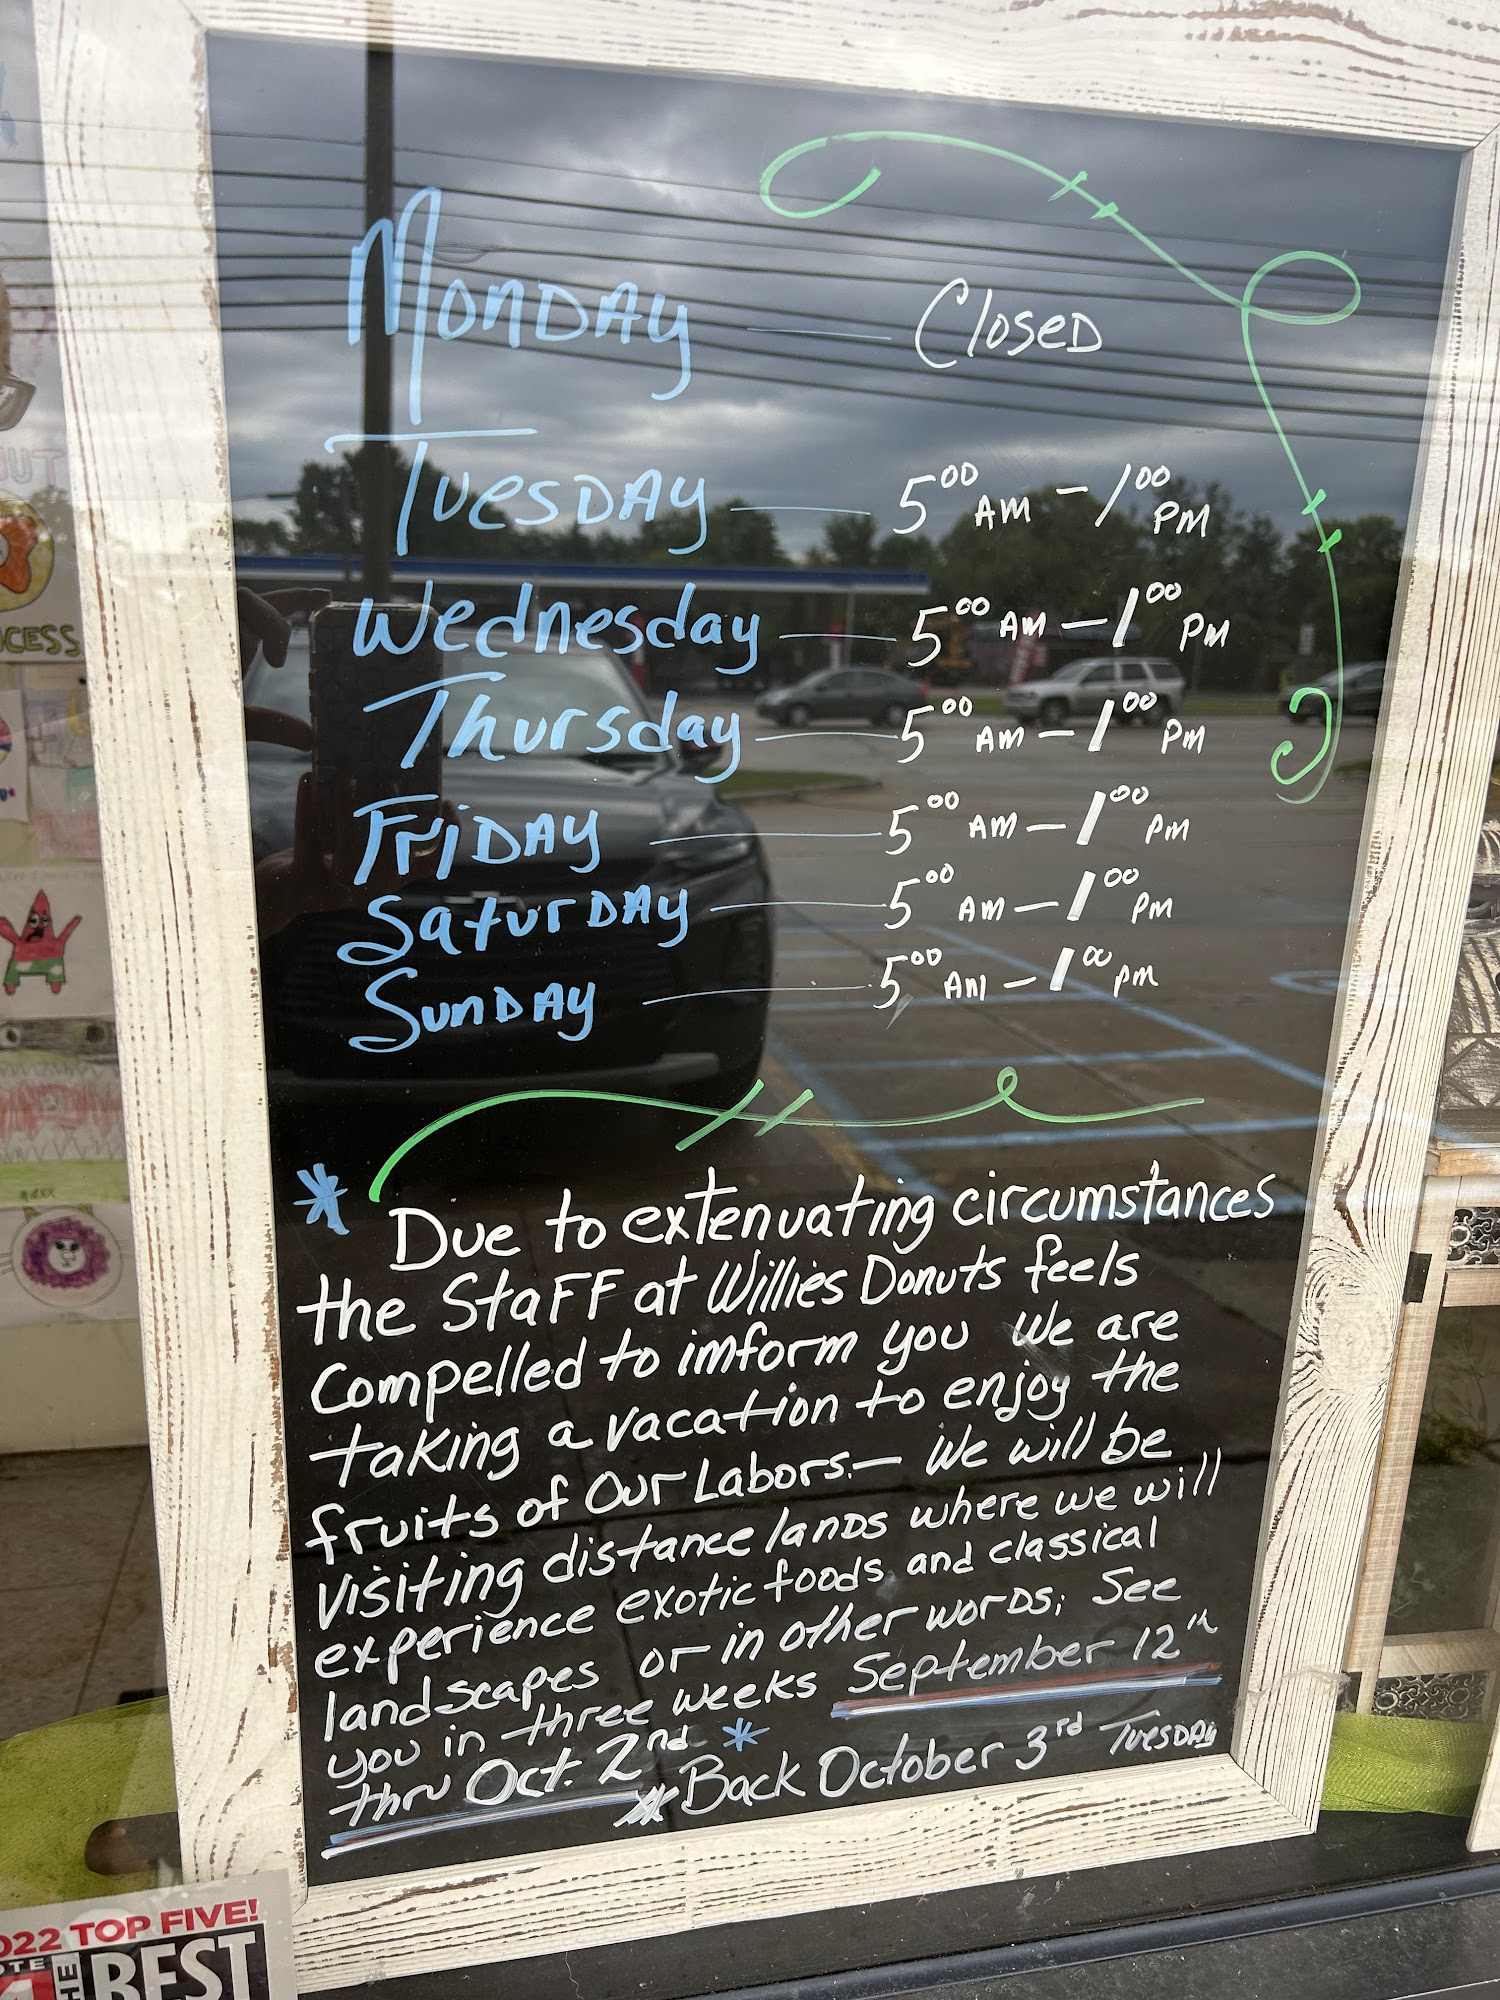 Monday Closed
Tuesday 5:00 AM - 1:00 PM
Wednesday 5:00 AM - 1:00 PM
Thursday 5:00 AM - 1:00 PM
Friday 5:00 AM - 1:00 PM
Saturday 5:00 AM - 1:00 PM
Sunday 5:00 AM - 1:00 PM
* Due to extenuating circumstances
the Staff at Willies Donuts feels
compelled to imform you We are
taking a vacation to enjoy the
fruits of Our Labors.— We will be
Visiting distance lands where we will
experience exotic foods, and classical
landscapes or in other words; See
you in three weeks September 12th
thru Oct. 2nd *
* Back October 3rd Tuesday
2022 TOP FIVE!
THE BEST